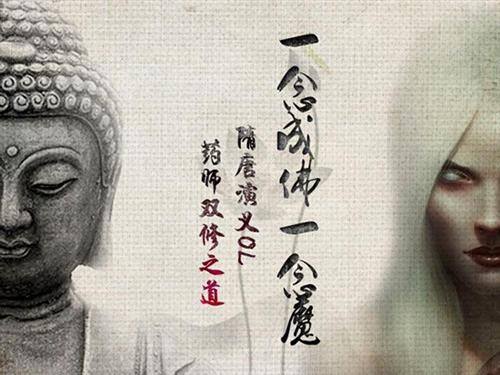 一念成佛一念魔
隋唐演义OL
药师双修之道